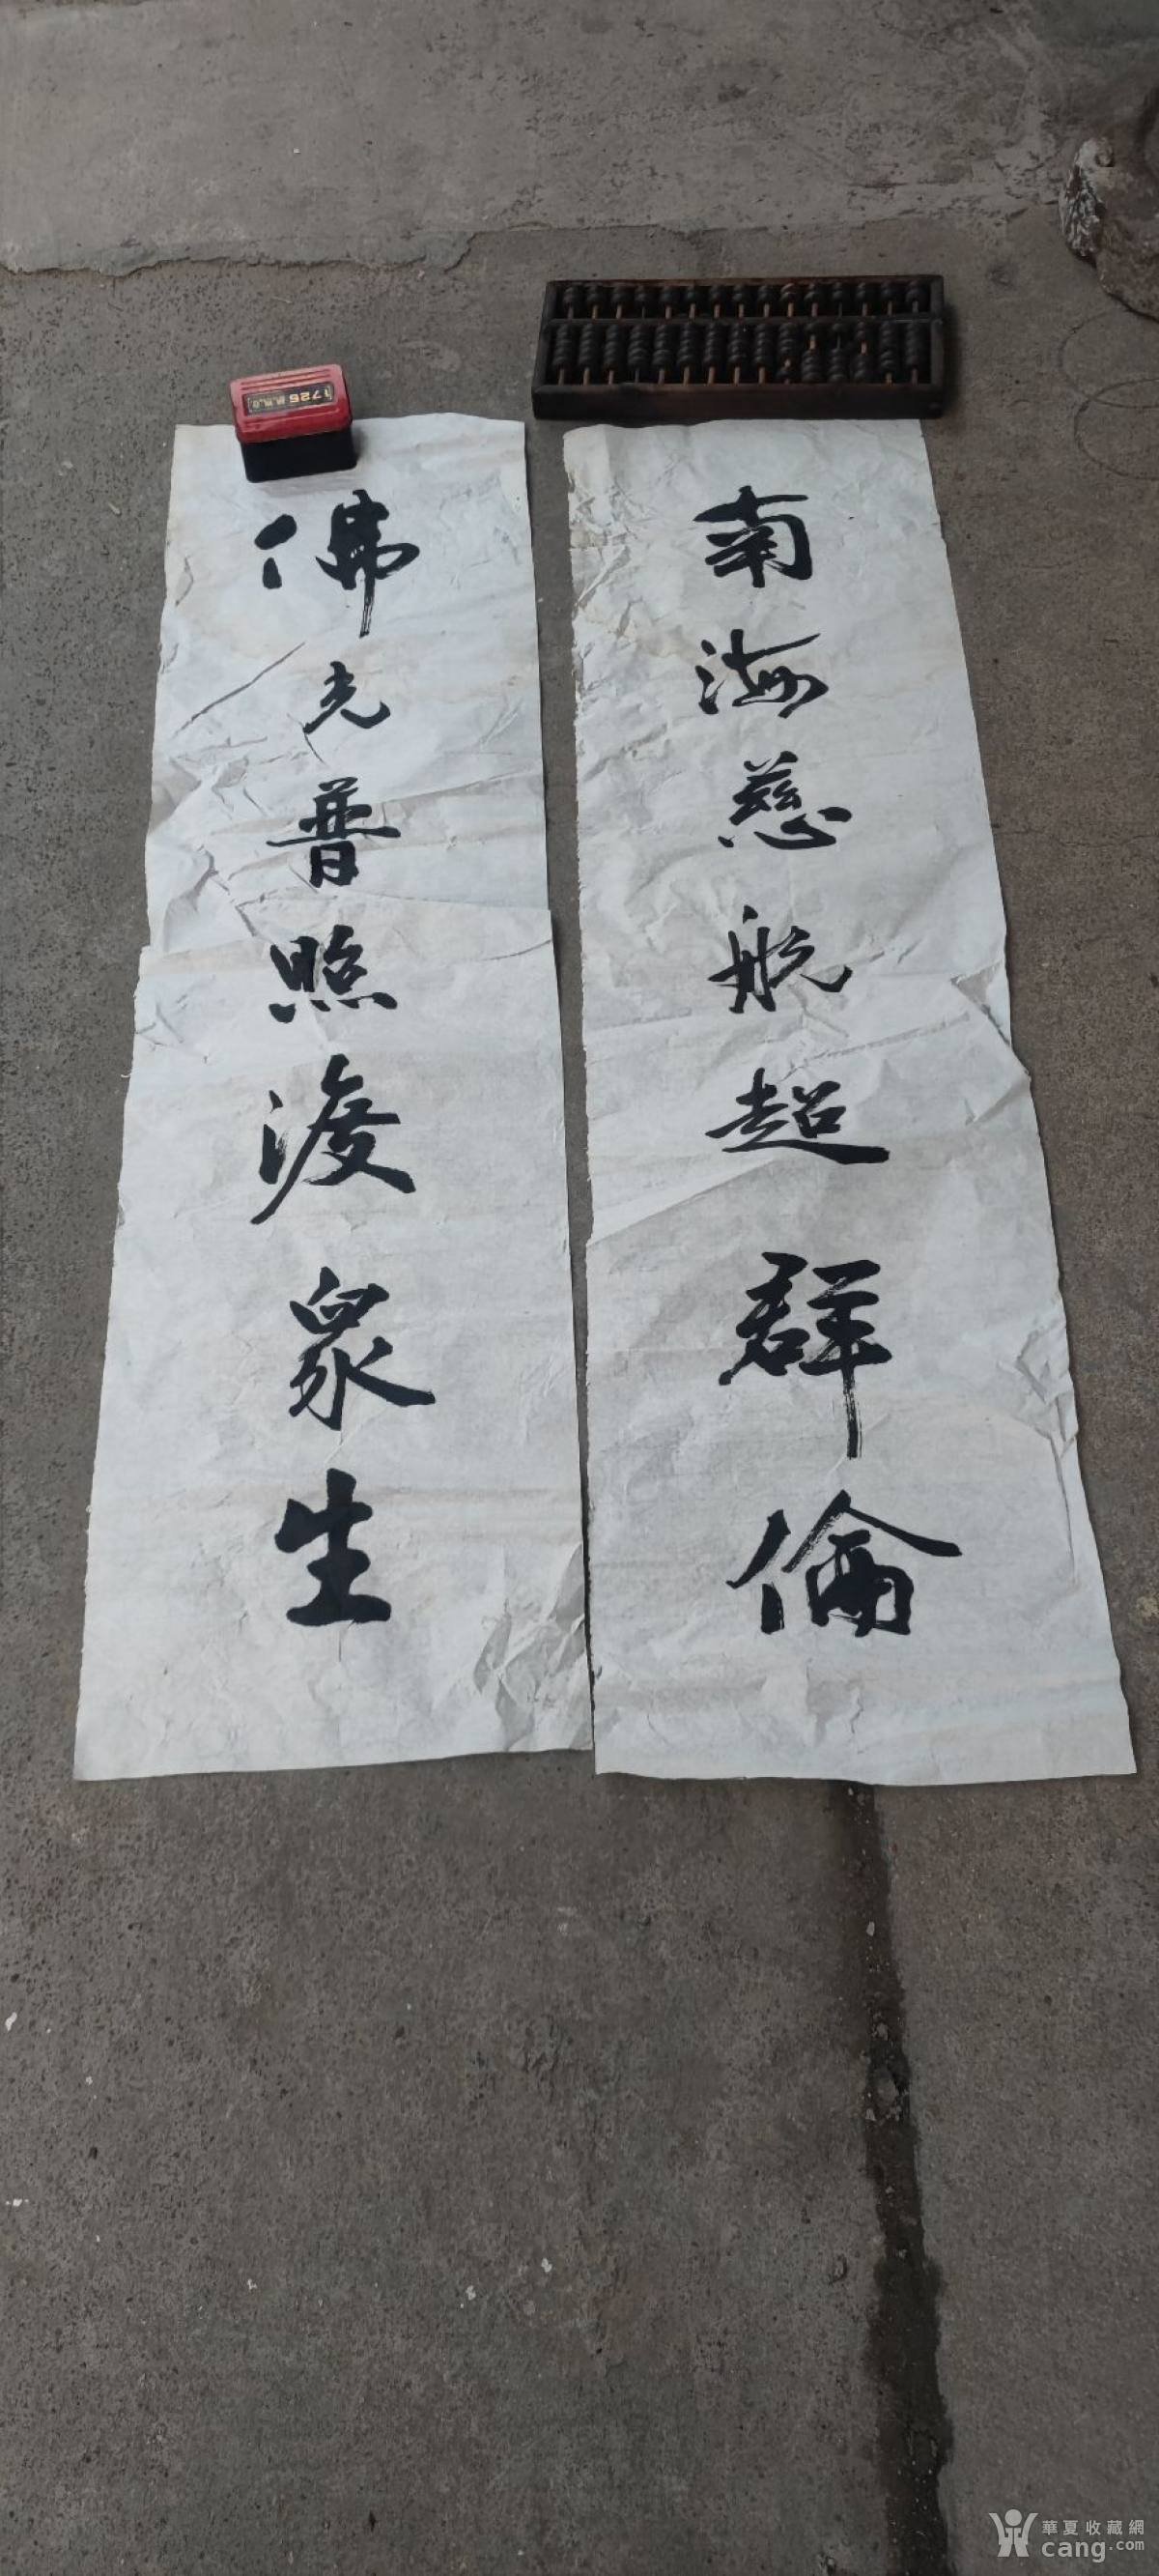 南海慈航超群倫
佛光普照渡眾生
1725
華夏收藏網
cang.com